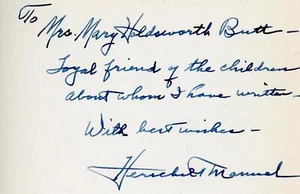 To
Mrs. Mary Holdsworth Butt -
Loyal friend of the children
about whom I have written -
With best wishes -
Herschel T Manuel